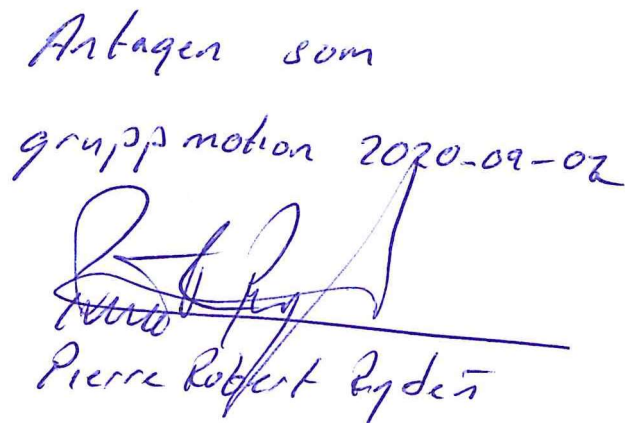 Antagen som
gruppmotion 2020-09-02
Pierre Robert Rydén